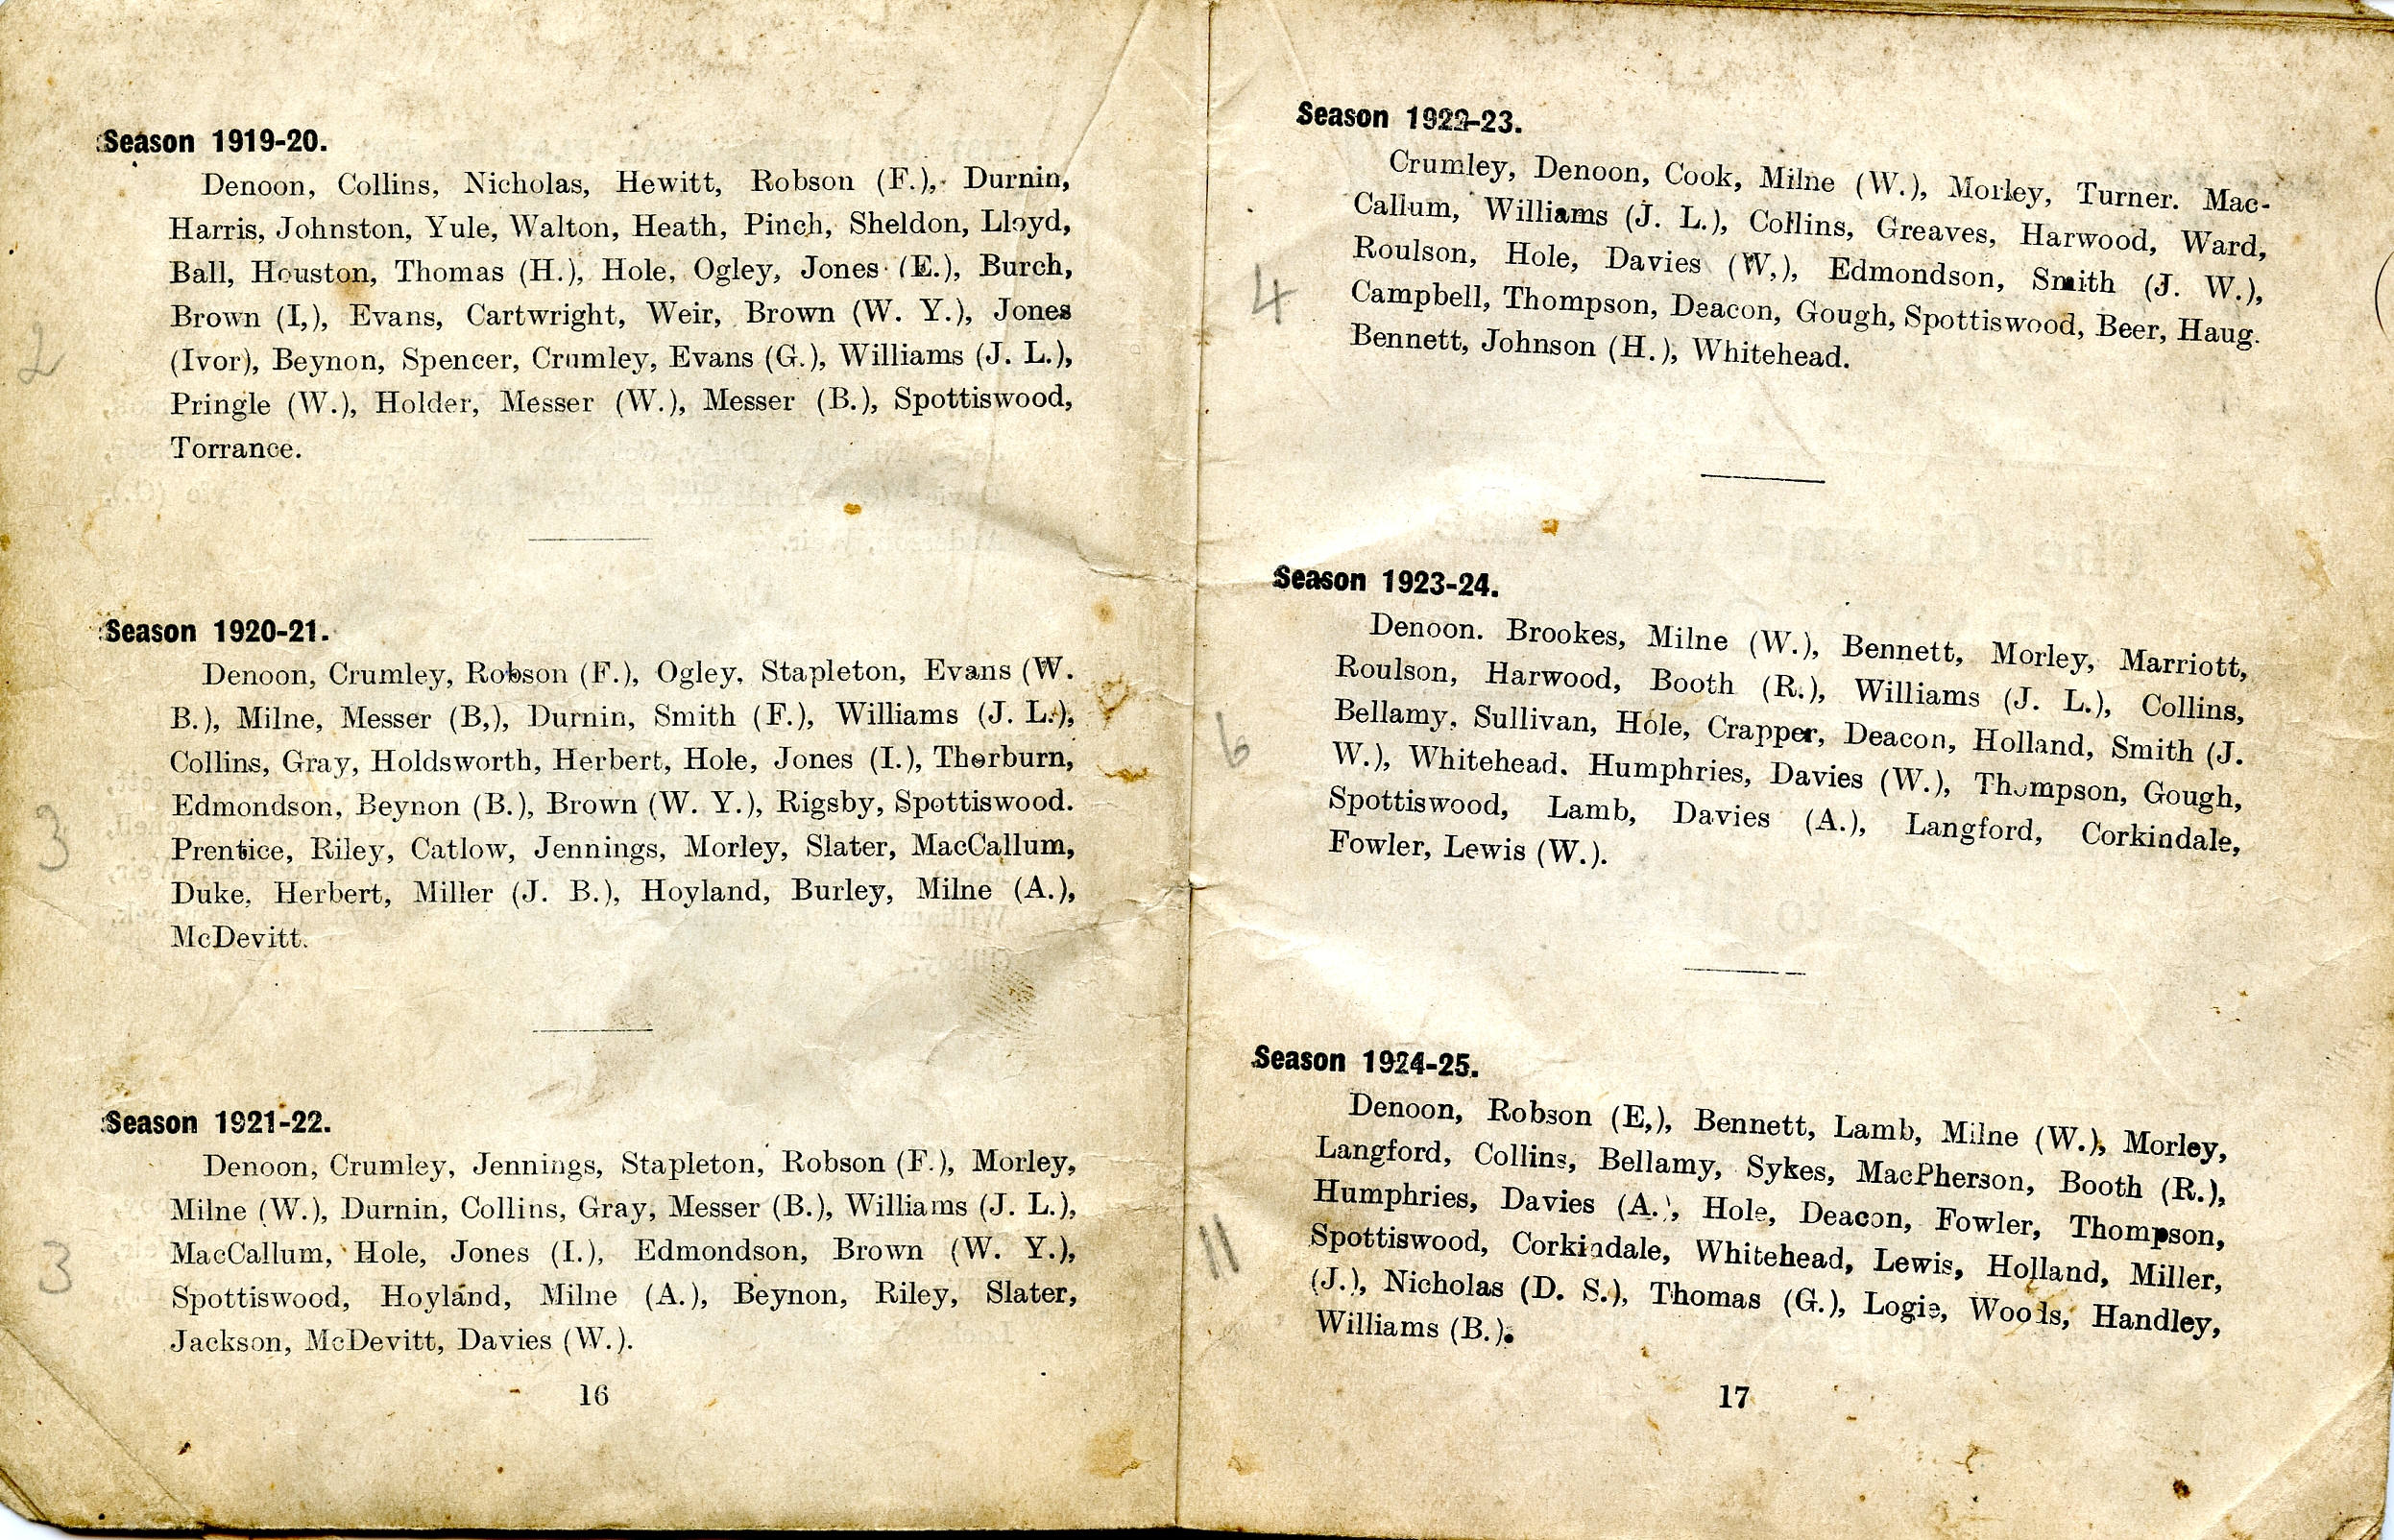 Season 1919-20.
Denoon, Collins, Nicholas, Hewitt, Robson (F.), Durnin,
Harris, Johnston, Yule, Walton, Heath, Pinch, Sheldon, Lloyd,
Ball, Houston, Thomas (H.), Hole, Ogley, Jones (E.), Burch,
Brown (I,), Evans, Cartwright, Weir, Brown (W. Y.), Jones
(Ivor), Beynon, Spencer, Crumley, Evans (G.), Williams (J. L.),
Pringle (W.), Holder, Messer (W.), Messer (B.), Spottiswood,
Torrance.
2
Season 1920-21.
Denoon, Crumley, Robson (F.), Ogley, Stapleton, Evans (W.
B.), Milne, Messer (B,), Durnin, Smith (F.), Williams (J. L.),
Collins, Gray, Holdsworth, Herbert, Hole, Jones (I.), Thorburn,
Edmondson, Beynon (B.), Brown (W. Y.), Rigsby, Spottiswood.
Prentice, Riley, Catlow, Jennings, Morley, Slater, MacCallum,
Duke, Herbert, Miller (J. B.), Hoyland, Burley, Milne (A.),
McDevitt.
3
Season 1921-22.
Denoon, Crumley, Jennings, Stapleton, Robson (F.), Morley,
Milne (W.), Durnin, Collins, Gray, Messer (B.), Williams (J. L.),
MacCallum, Hole, Jones (I.), Edmondson, Brown (W. Y.),
Spottiswood, Hoyland, Milne (A.), Beynon, Riley, Slater,
Jackson, McDevitt, Davies (W.).
3
16
Season 1922-23.
Crumley, Denoon, Cook, Milne (W.), Morley, Turner. Mac-
Callum, Williams (J. L.), Collins, Greaves, Harwood, Ward,
Roulson, Hole, Davies (W,), Edmondson, Smith (J. W.),
Campbell, Thompson, Deacon, Gough, Spottiswood, Beer, Haug.
Bennett, Johnson (H.), Whitehead.
4
Season 1923-24.
Denoon. Brookes, Milne (W.), Bennett, Morley, Marriott,
Roulson, Harwood, Booth (R.), Williams (J. L.), Collins,
Bellamy, Sullivan, Hole, Crapper, Deacon, Holland, Smith (J.
W.), Whitehead. Humphries, Davies (W.), Thompson, Gough,
Spottiswood, Lamb, Davies (A.), Langford, Corkindale,
Fowler, Lewis (W.).
6
Season 1924-25.
Denoon, Robson (E,), Bennett, Lamb, Milne (W.), Morley,
Langford, Collins, Bellamy, Sykes, MacPherson, Booth (R.),
Humphries, Davies (A.), Hole, Deacon, Fowler, Thompson,
Spottiswood, Corkindale, Whitehead, Lewis, Holland, Miller,
(J.), Nicholas (D. S.), Thomas (G.), Logie, Woods, Handley,
Williams (B.).
11
17